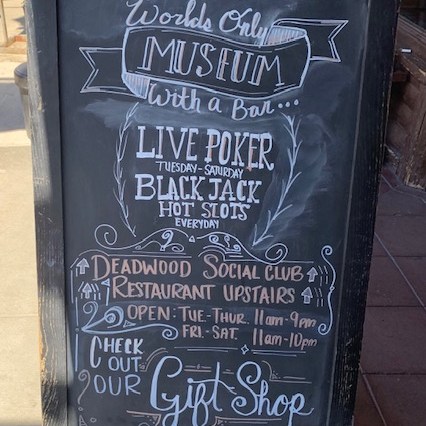 Worlds Only
MUSEUM
With a Bar...
LIVE POKER
TUESDAY-SATURDAY
BLACK JACK
HOT SLOTS
EVERYDAY
DEADWOOD SOCIAL CLUB
RESTAURANT UPSTAIRS
OPEN: TUE-THUR. 11am-9pm
FRI.-SAT. 11am-10pm
CHECK
OUT
OUR
Gift Shop